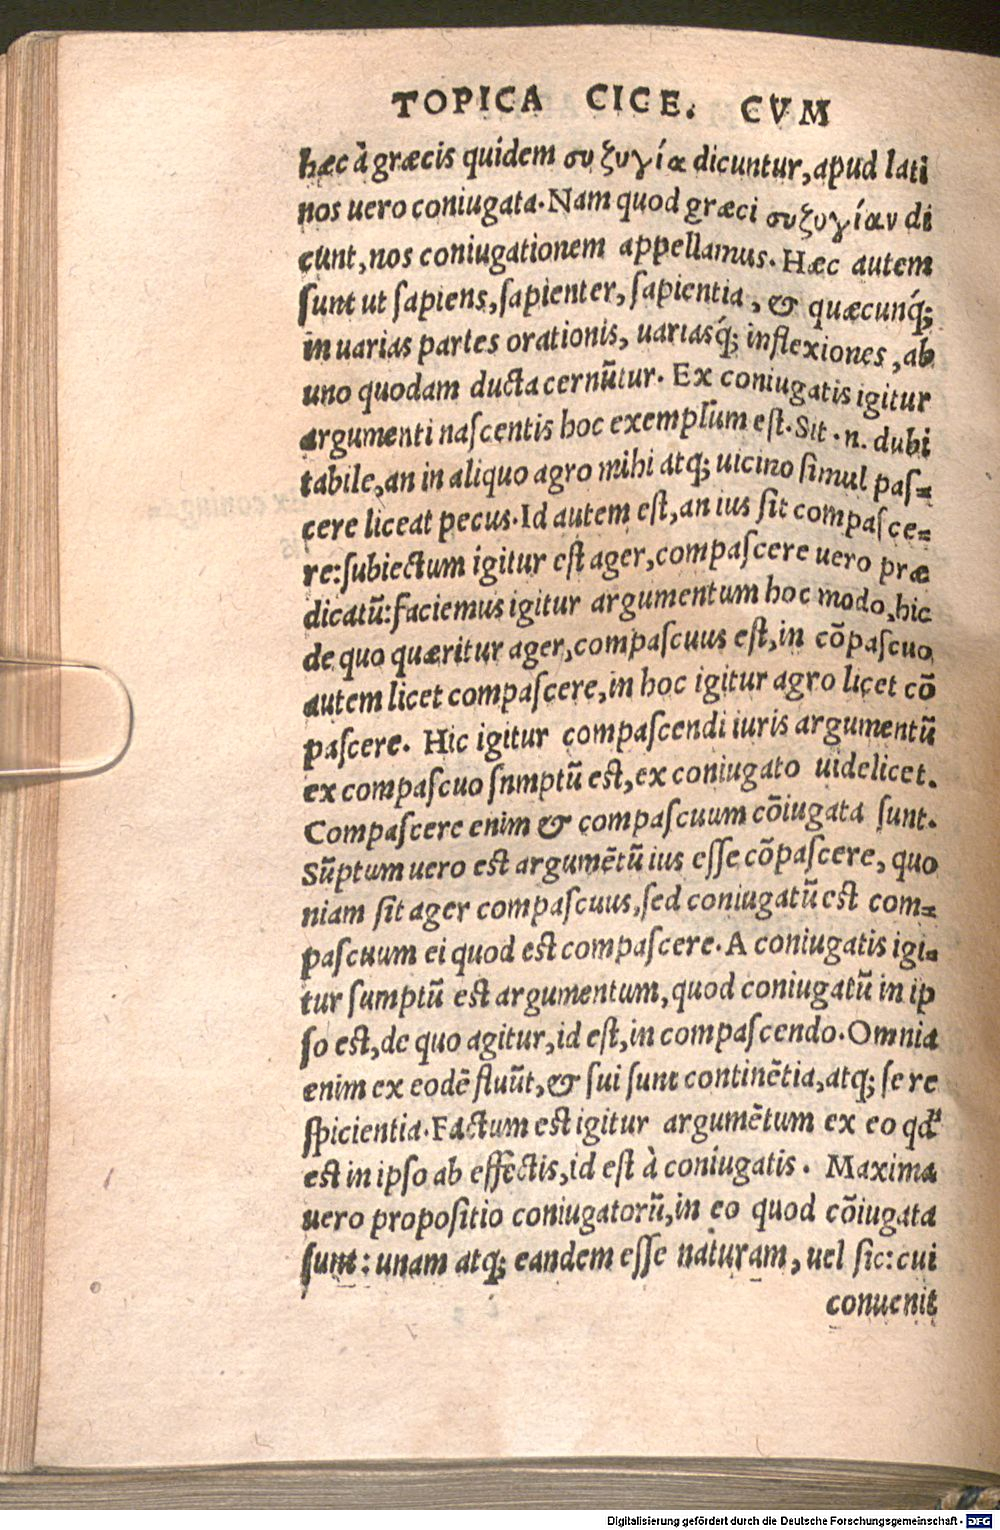 TOPICA CICE. CVM
hæc à græcis quidem συζυγία dicuntur, apud lati
nos uero coniugata. Nam quod græci συζυγίαν di
cunt, nos coniugationem appellamus. Hæc autem
sunt ut sapiens, sapienter, sapientia, & quæcunq́;
in uarias partes orationis, uariasq́; inflexiones, ab
uno quodam ducta cernũtur. Ex coniugatis igitur
argumenti nascentis hoc exemplum est. Sit .n. dubi
tabile, an in aliquo agro mihi atq; uicino simul pas=
cere liceat pecus. Id autem est, an ius sit compasce=
re: subiectum igitur est ager, compascere uero præ
dicatũ: faciemus igitur argumentum hoc modo, hic
de quo quæritur ager, compascuus est, in cõpascuo
autem licet compascere, in hoc igitur agro licet cõ
pascere. Hic igitur compascendi iuris argumentũ
ex compascuo snmptũ est, ex coniugato uidelicet.
Compascere enim & compascuum cõiugata sunt.
Sũptum uero est argumẽtũ ius esse cõpascere, quo
niam sit ager compascuus, sed coniugatũ est com=
pascuum ei quod est compascere. A coniugatis igi=
tur sumptũ est argumentum, quod coniugatũ in ip
so est, de quo agitur, id est, in compascendo. Omnia
enim ex eodẽ fluũt, & sui sunt continẽtia, atq; se re
spicientia. Factum est igitur argumẽtum ex eo qd
est in ipso ab effectis, id est à coniugatis. Maxima
uero propositio coniugatorũ, in eo quod cõiugata
sunt: unam atq; eandem esse naturam, uel sic: cui
conuenit
Digitalisierung gefördert durch die Deutsche Forschungsgemeinschaft - DFG